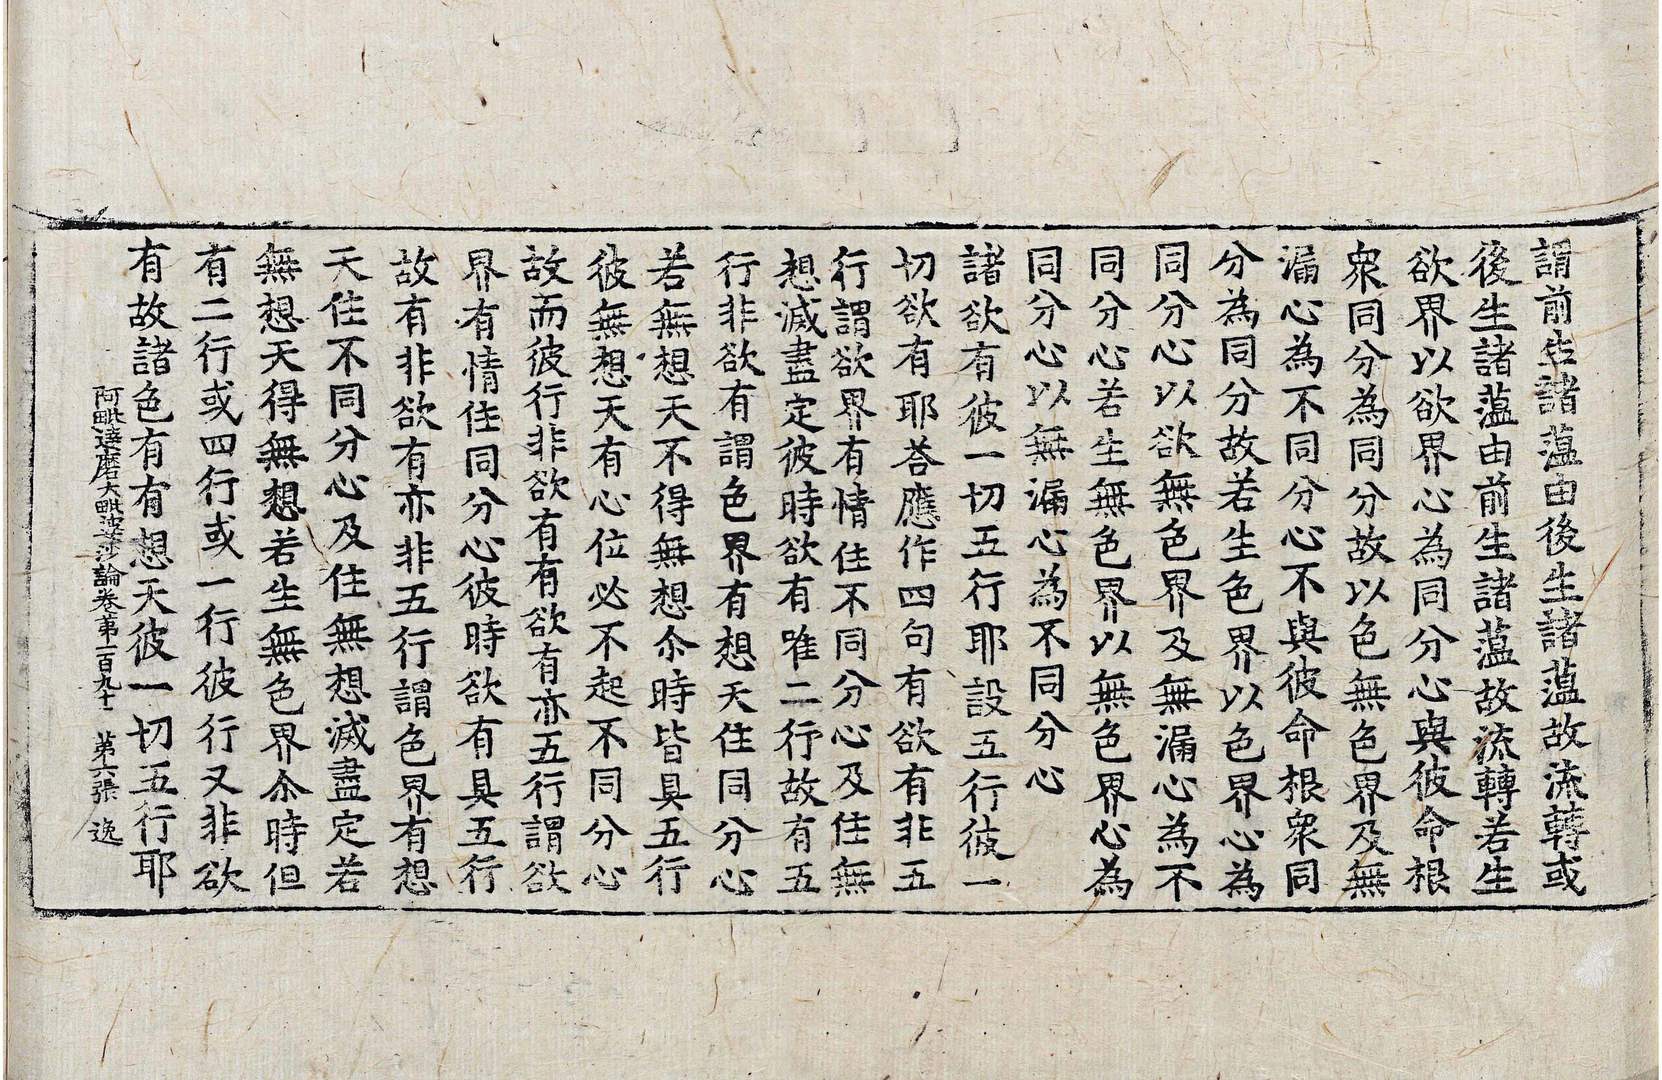 謂前生諸薀由後生諸薀故流轉或
後生諸薀由前生諸薀故流轉若生
欲界以欲界心為同分心與彼命根
衆同分為同分故以色無色界及無
漏心為不同分心不與彼命根衆同
分為同分故若生色界以色界心為
同分心以欲無色界及無漏心為不
同分心若生無色界以無色界心為
同分心以無漏心為不同分心
諸欲有彼一切五行耶設五行彼一
切欲有耶荅應作四句有欲有非五
行謂欲界有情住不同分心及住無
想滅盡定彼時欲有唯二行故有五
行非欲有謂色界有想天住同分心
若無想天不得無想尒時皆具五行
彼無想天有心位必不起不同分心
故而彼行非欲有有欲有亦五行謂欲
界有情住同分心彼時欲有具五行
故有非欲有亦非五行謂色界有想
天住不同分心及住無想滅盡定若
無想天得無想若生無色界尒時但
有二行或四行或一行彼行又非欲
有故諸色有有想天彼一切五行耶
阿毗達磨大毗婆沙論卷第一百九十二 第六張 逸